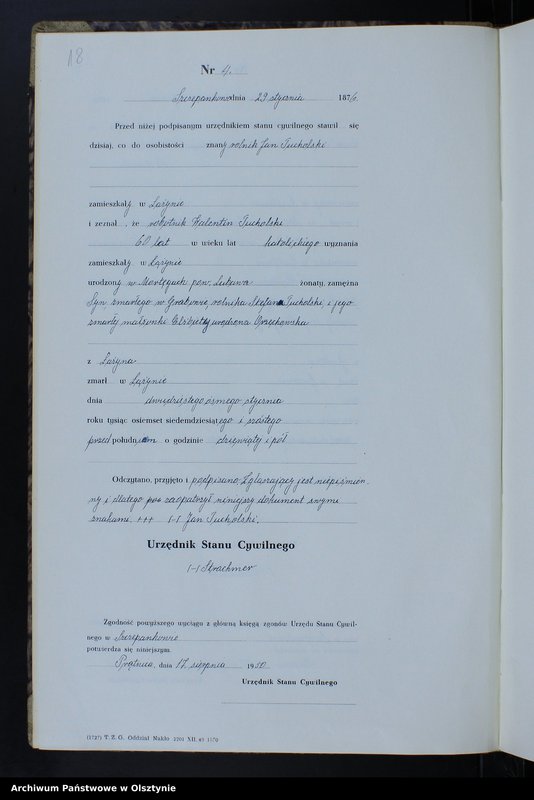 18
Nr 4.
Szczepankowo dnia 29 stycznia 1876
Przed niżej podpisanym urzędnikiem stanu cywilnego stawił się
dzisiaj, co do osobistości znany rolnik Jan Tucholski
zamieszkały w Łążynie
i zeznał, że robotnik Walentin Tucholski
60 lat w wieku lat katolickiego wyznania
zamieszkały w Łążynie
urodzony w Mortęgach pow. Lubawa żonaty, zamężna
Syn zmarłego w Grabowie rolnika Stefana Tucholski, i jego
zmarłej małżonki Elżbiety urodzona
z Łążyna
zmarł w Łążynie
dnia dwudziestego ósmego stycznia
roku tysiąc osiemset siedemdziesiątego i szóstego
przed południem o godzinie dziewiątej i pół
Odczytano, przyjęto i podpisano Zgłaszający jest niepiśmien-
ny i dlatego zaopatrzył niniejszy dokument swymi
znakami +++ (-) Jan Tucholski.
Urzędnik Stanu Cywilnego
(-)
Zgodność powyższego wyciągu z główną księgą zgonów Urzędu Stanu Cywil-
nego w Szczepankowie
potwierdza się niniejszym.
Prątnica, dnia 17 sierpnia 1950
Urzędnik Stanu Cywilnego
(1727) T. Z. G. Oddział Nakło 2201 XII. 49
Archiwum Państwowe w Olsztynie